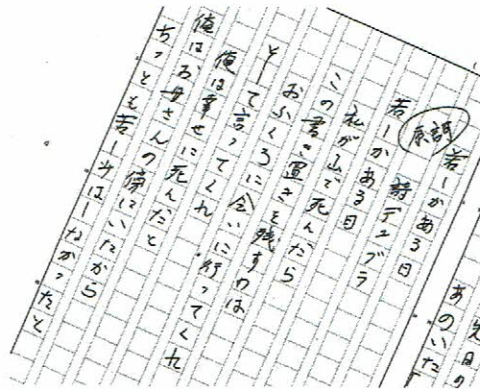 先日の
あのいた
若しかある日
詩デュプラ
若しかある日
私が山で死んだら
この書き置きを残すのは
おふくろに会いに行ってくれ
そして言ってくれ
俺は幸せに死んだと
俺はお母さんの傍にいたから
ちっとも苦しみはしなかったと